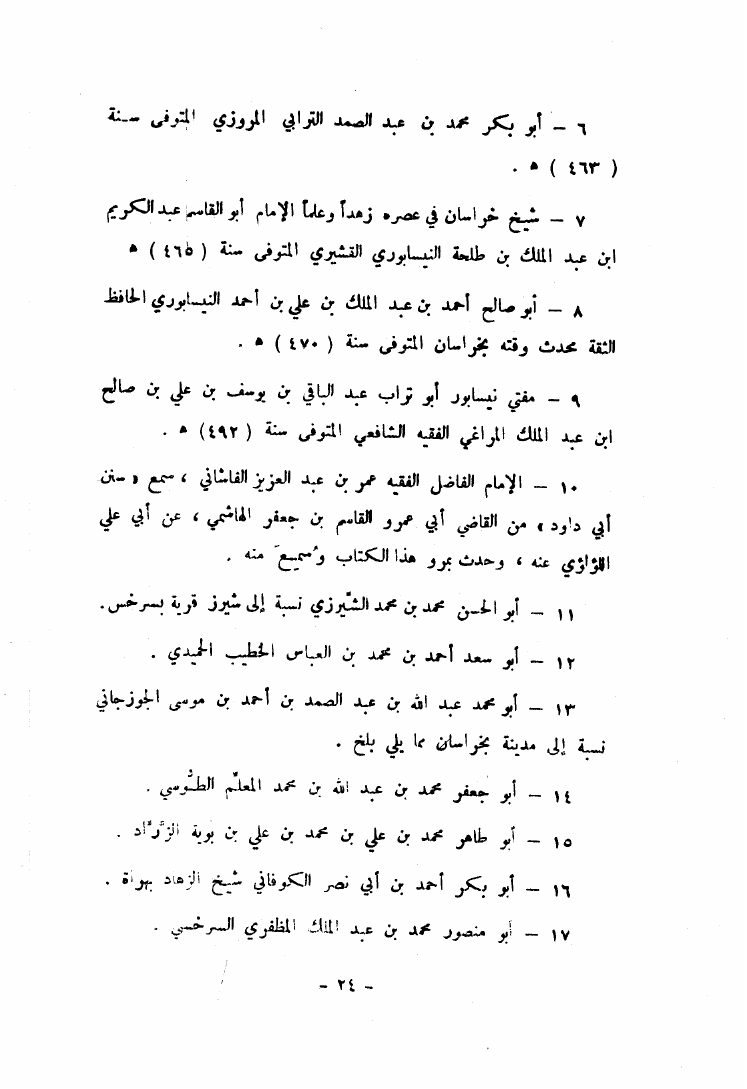 ٦ – أبو بكر محمد بن عبد الصمد الترابي المروزي المتوفى سنة
( ٤٦٣ ) ه .
٧ – شيخ خراسان في عصره زهداً وعلماً الإمام أبو القاسم عبد الكريم
ابن عبد الملك بن طلحة النيسابوري القشيري المتوفى سنة ( ٤٦٥ ) ه
٨ – أبو صالح أحمد بن عبد الملك بن علي بن أحمد النيسابوري الحافظ
الثقة محدث وقته بخراسان المتوفى سنة ( ٤٧٠ ) ه .
٩ – مفتي نيسابور أبو تراب عبد الباقي بن يوسف بن علي بن صالح
ابن عبد الملك المراغي الفقيه الشافعي المتوفى سنة ( ٤٩٢) ه .
١٠ – الإمام الفاضل الفقيه عمر بن عبد العزيز الفاشاني ، سمع « سنن
أبي داود » من القاضي أبي عمرو القاسم بن جعفر الهاشمي ، عن أبي علي
اللؤلؤي عنه ، وحدث بمرو هذا الكتاب وسُمِعَ منه .
١١ – أبو الحسن محمد بن محمد الشِّيرزي نسبة إلى شيرز قرية بسرخس.
١٢ – أبو سعد أحمد بن محمد بن العباس الخطيب الحميدي .
١٣ – أبو محمد عبد الله بن عبد الصمد بن أحمد بن موسى الجوزجاني
نسبة إلى مدينة بخراسان مما يلي بلخ .
١٤ – أبو جعفر محمد بن عبد الله بن محمد المعلِّم الطُّوسي .
١٥ – أبو طاهر محمد بن علي بن محمد بن علي بن بوية الزَّرَّاد .
١٦ – أبو بكر أحمد بن أبي نصر الكوفاني شيخ الزهاد بهراة .
١٧ – أبو منصور محمد بن عبد الملك المظفري السرخسي .
– ٢٤ –